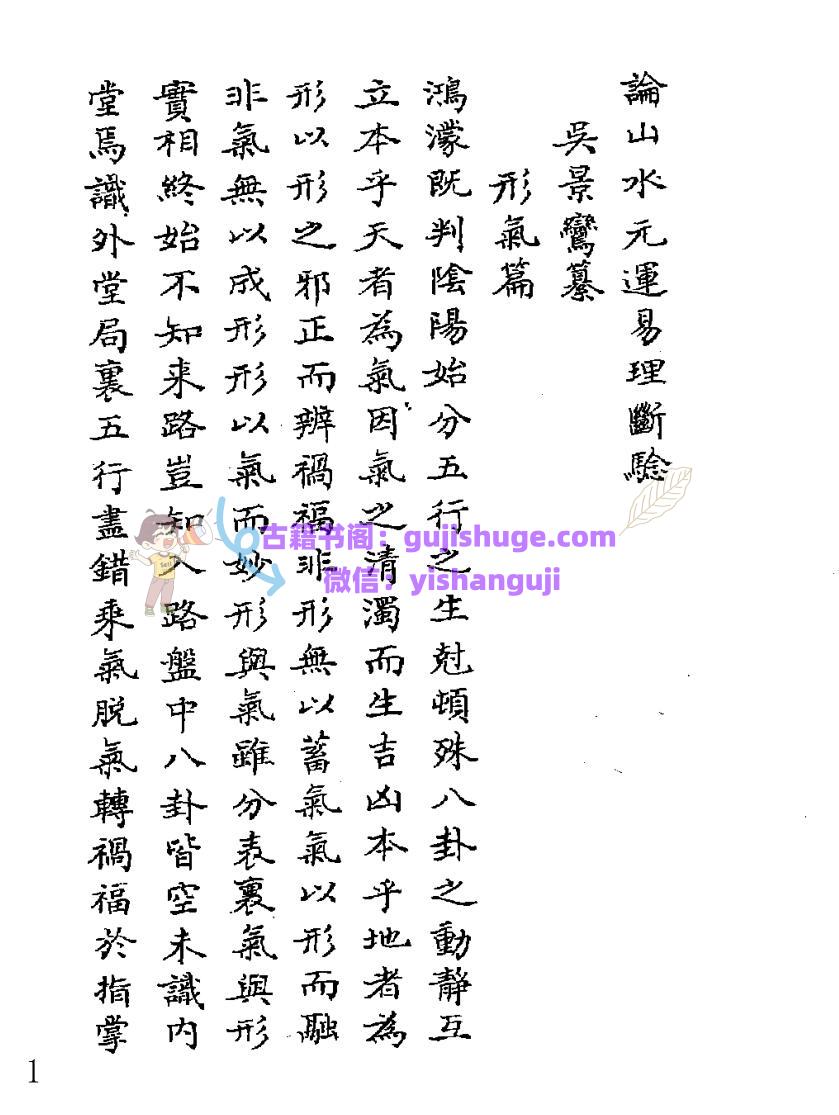 論山水元運易理斷騐
吳景鸞纂
形氣篇
鴻濛既判陰陽始分五行之生尅頓殊八卦之動靜互
立本乎天者為氣因氣之清濁而生吉凶本乎地者為
形以形之邪正而辨禍福非形無以蓄氣氣以形而融
非氣無以成形形以氣而妙形與氣雖分表裏氣與形
實相終始不知来路豈知入路盤中八卦皆空未識内
堂焉識外堂局裏五行盡錯乘氣脱氣轉禍福於指掌
古籍书阁：gujishuge.com
微信：yishanguji
1